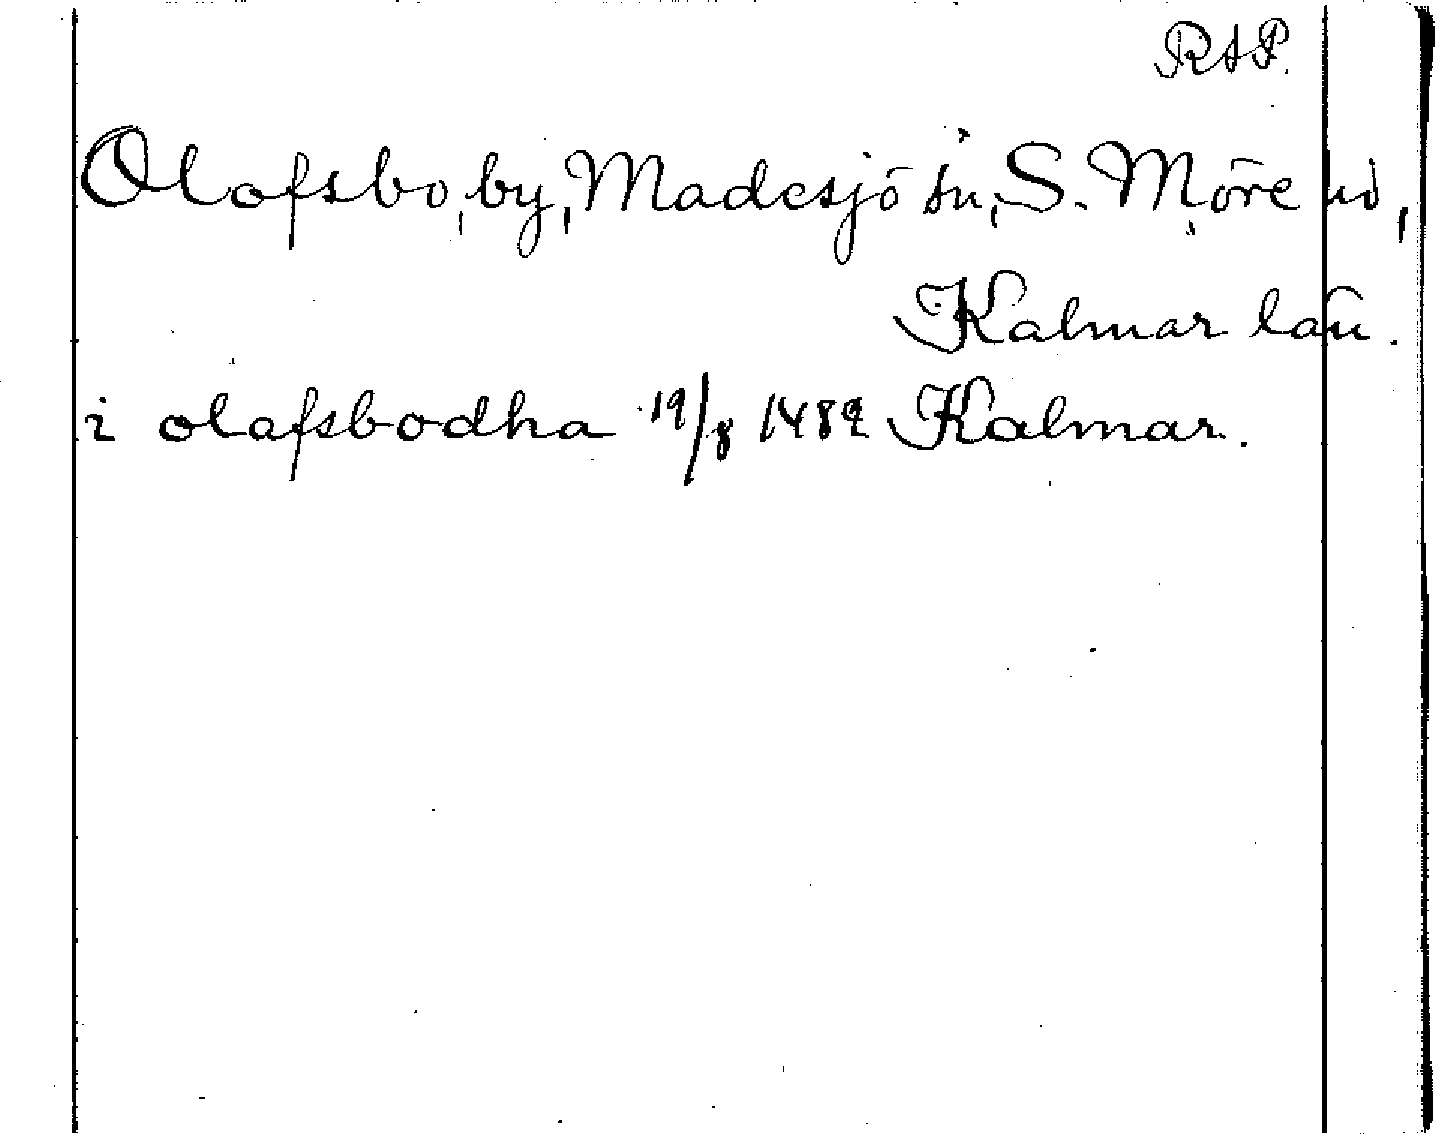 RAP.
Olofsbo, by, Madesjö sn, S. Möre hd,
Kalmar län.
i olafsbodha 19/8 1482 Kalmar.